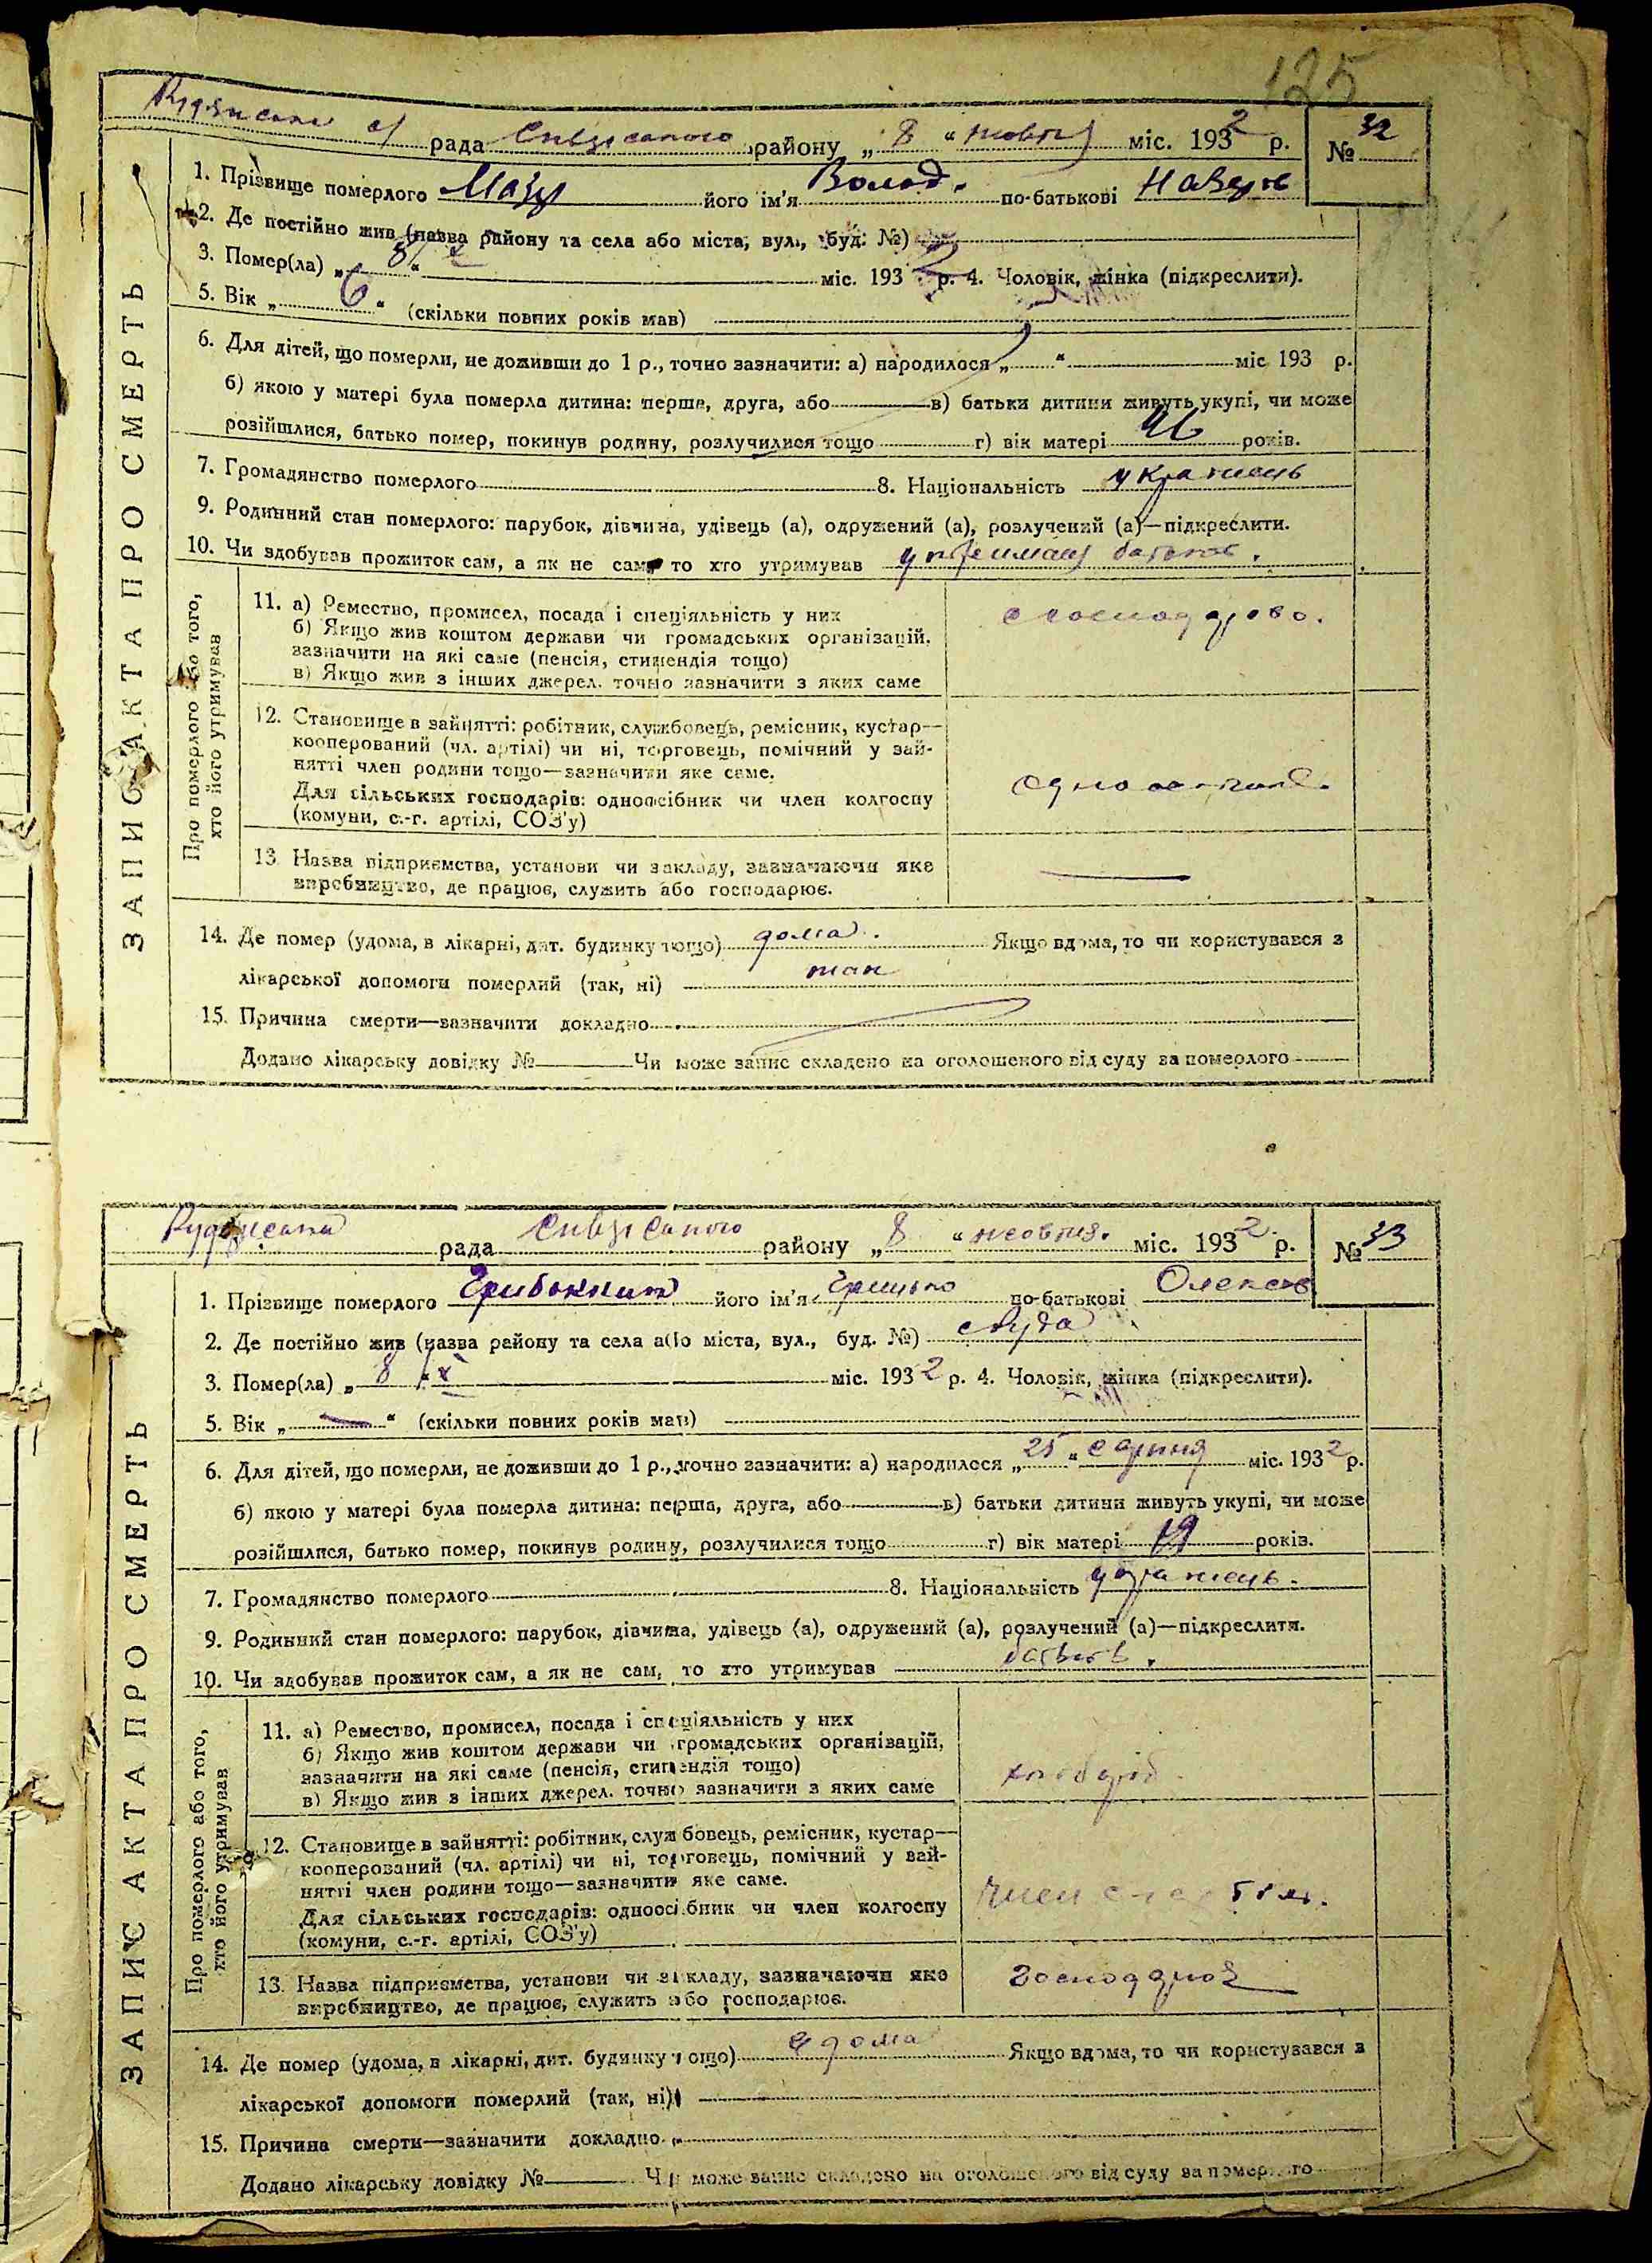 125
рада району „ 8 “ жовтня міс. 1932 р. № 32
1. Прізвище померлого його ім'я Волод. по-батькові
2. Де постійно жив (назва району та села або міста, вул., буд. №)
3. Помер(ла) „ 8 “ X міс. 1932 р. 4. Чоловік, жінка (підкреслити).
5. Вік „ 6 “ (скільки повних років мав)
6. Для дітей, що померли, не доживши до 1 р., точно зазначити: а) народилося „ “ міс 193 р.
б) якою у матері була померла дитина: перша, друга, або в) батьки дитини живуть укупі, чи може
розійшлися, батько помер, покинув родину, розлучилися тощо г) вік матері 46 років.
7. Громадянство померлого 8. Національність українець
9. Родинний стан померлого: парубок, дівчина, удівець (а), одружений (а), розлучений (а)—підкреслити.
10. Чи здобував прожиток сам, а як не сам, то хто утримував
ЗАПИС АКТА ПРО СМЕРТЬ
Про померлого або того, хто його утримував
11. а) Ремество, промисел, посада і спеціяльність у них
б) Якщо жив коштом держави чи громадських організацій,
зазначити на які саме (пенсія, стипендія тощо)
в) Якщо жив з інших джерел. точно зазначити з яких саме
12. Становище в зайнятті: робітник, службовець, ремісник, кустар—
кооперований (чл. артілі) чи ні, торговець, помічний у зай-
нятті член родини тощо—зазначити яке саме.
Для сільських господарів: одноосібник чи член колгоспу
(комуни, с.-г. артілі, СОЗ'у)
13. Назва підприємства, установи чи закладу, зазначаючи яке
виробництво, де працює, служить або господарює.
14. Де помер (удома, в лікарні, дит. будинку тощо) дома. Якщо вдома, то чи користувався з
лікарської допомоги померлий (так, ні) так
15. Причина смерти—зазначити докладно
Додано лікарську довідку № Чи може запис складено на оголошеного від суду за померлого
рада району „ 8 “ жовтня. міс. 1932 р. № 33
1. Прізвище померлого його ім'я Грицько по-батькові Олексов
2. Де постійно жив (назва району та села або міста, вул., буд. №) с Руда
3. Помер(ла) „ 8 “ X міс. 1932 р. 4. Чоловік, жінка (підкреслити).
5. Вік „ — “ (скільки повних років мав)
6. Для дітей, що померли, не доживши до 1 р., точно зазначити: а) народилося „ 25 “ серпня міс. 1932 р.
б) якою у матері була померла дитина: перша, друга, або в) батьки дитини живуть укупі, чи може
розійшлися, батько помер, покинув родину, розлучилися тощо г) вік матері 19 років.
7. Громадянство померлого 8. Національність українець.
9. Родинний стан померлого: парубок, дівчина, удівець (а), одружений (а), розлучений (а)—підкреслити.
10. Чи здобував прожиток сам, а як не сам, то хто утримував
ЗАПИС АКТА ПРО СМЕРТЬ
Про померлого або того, хто його утримував
11. а) Ремество, промисел, посада і спеціяльність у них
б) Якщо жив коштом держави чи громадських організацій,
зазначити на які саме (пенсія, стипендія тощо)
в) Якщо жив з інших джерел. точно зазначити з яких саме
хлібороб
12. Становище в зайнятті: робітник, службовець, ремісник, кустар—
кооперований (чл. артілі) чи ні, торговець, помічний у зай-
нятті член родини тощо—зазначити яке саме.
Для сільських господарів: одноосібник чи член колгоспу
(комуни, с.-г. артілі, СОЗ'у)
член
13. Назва підприємства, установи чи закладу, зазначаючи яке
виробництво, де працює, служить або господарює.
14. Де помер (удома, в лікарні, дит. будинку тощо) удома Якщо вдома, то чи користувався з
лікарської допомоги померлий (так, ні)
15. Причина смерти—зазначити докладно
Додано лікарську довідку № Чи може запис складено на оголошеного від суду за померлого